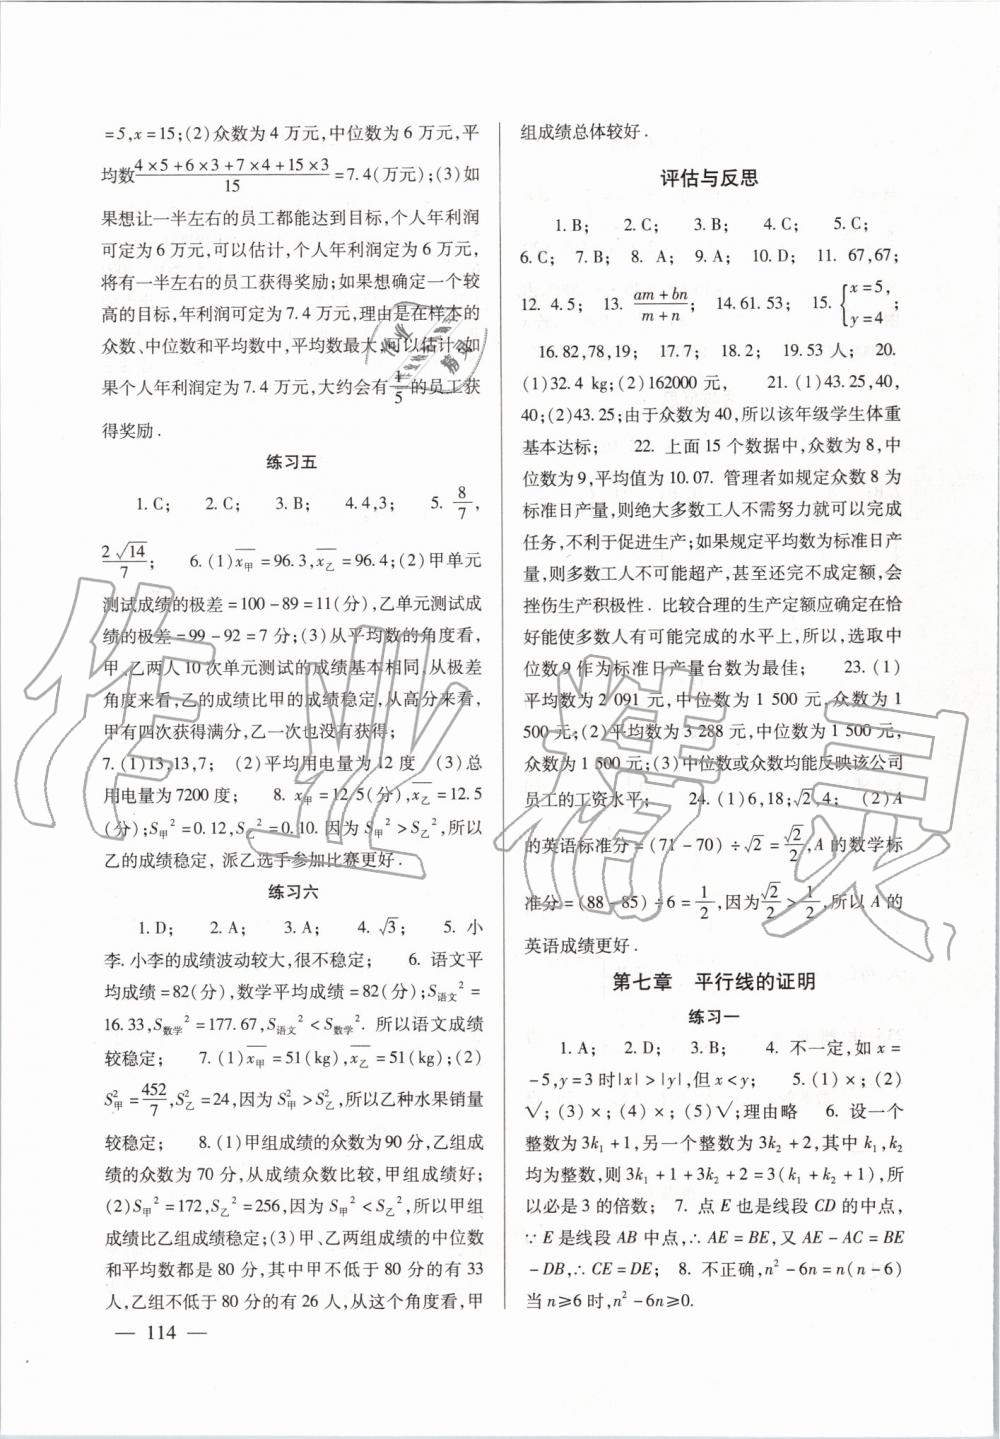 =5,x=15;(2)众数为4万元,中位数为6万元,平
均数(4×5+6×3+7×4+15×3)/15=7.4(万元);(3)如
果想让一半左右的员工都能达到目标,个人年利润
可定为6万元,可以估计,个人年利润定为6万元,
将有一半左右的员工获得奖励;如果想确定一个较
高的目标,年利润可定为7.4万元,理由是在样本的
众数、中位数和平均数中,平均数最大,可以估计,如
果个人年利润定为7.4万元,大约会有1/5的员工获
得奖励.
练习五
1.C; 2.C; 3.B; 4.4,3; 5. 8/7,
2√14/7; 6.(1)x̄甲=96.3,x̄乙=96.4;(2)甲单元
测试成绩的极差=100-89=11(分),乙单元测试成
绩的极差=99-92=7分;(3)从平均数的角度看,
甲、乙两人10次单元测试的成绩基本相同.从极差
角度来看,乙的成绩比甲的成绩稳定,从高分来看,
甲有四次获得满分,乙一次也没有获得;
7.(1)13,13,7; (2)平均用电量为12度 (3)总
用电量为7200度; 8. x̄甲=12.5(分),x̄乙=12.5
(分);S甲²=0.12,S乙²=0.10.因为S甲²>S乙²,所以
乙的成绩稳定,派乙选手参加比赛更好.
练习六
1.D; 2.A; 3.A; 4.√3; 5.小
李.小李的成绩波动较大,很不稳定; 6.语文平
均成绩=82(分),数学平均成绩=82(分);S语文²=
16.33,S数学²=177.67,S语文²<S数学².所以语文成绩
较稳定; 7.(1)x̄甲=51(kg),x̄乙=51(kg);(2)
S甲²=452/7,S乙²=24,因为S甲²>S乙²,所以乙种水果销量
较稳定; 8.(1)甲组成绩的众数为90分,乙组成
绩的众数为70分,从成绩众数比较,甲组成绩好;
(2)S甲²=172,S乙²=256,因为S甲²<S乙²,所以甲组
成绩比乙组成绩稳定;(3)甲、乙两组成绩的中位数
和平均数都是80分,其中甲不低于80分的有33
人,乙组不低于80分的有26人,从这个角度看,甲
— 114 —
组成绩总体较好.
评估与反思
1.B; 2.C; 3.B; 4.C; 5.C;
6.C; 7.B; 8. A; 9.A; 10.D; 11. 67,67;
12. 4.5; 13. (am+bn)/(m+n); 14.61.53; 15. {x=5,y=4;
16.82,78,19; 17.7; 18.2; 19.53人; 20.
(1)32.4 kg;(2)162000元, 21.(1)43.25,40,
40;(2)43.25;由于众数为40,所以该年级学生体重
基本达标; 22. 上面15个数据中,众数为8,中
位数为9,平均值为10.07. 管理者如规定众数8为
标准日产量,则绝大多数工人不需努力就可以完成
任务,不利于促进生产;如果规定平均数为标准日产
量,则多数工人不可能超产,甚至还完不成定额,会
挫伤生产积极性.比较合理的生产定额应确定在恰
好能使多数人有可能完成的水平上,所以,选取中
位数9作为标准日产量台数为最佳; 23.(1)
平均数为2 091元,中位数为1 500元,众数为1
500元;(2)平均数为3 288元,中位数为1 500元,
众数为1 500元;(3)中位数或众数均能反映该公司
员工的工资水平; 24.(1)6,18;√2,4; (2)A
的英语标准分=(71-70)÷√2=√2/2,A的数学标
准分=(88-85)÷6=1/2,因为√2/2>1/2,所以A的
英语成绩更好.
第七章 平行线的证明
练习一
1.A; 2.D; 3.B; 4. 不一定,如x=
-5,y=3时|x|>|y|,但x<y; 5.(1)×;(2)
√;(3)×;(4)×;(5)√;理由略 6. 设一个
整数为3k₁+1,另一个整数为3k₂+2,其中k₁,k₂
均为整数,则3k₁+1+3k₂+2=3(k₁+k₂+1),所
以必是3的倍数; 7. 点E也是线段CD的中点,
∵E是线段AB中点,∴AE=BE,又AE-AC=BE
-DB,∴CE=DE; 8. 不正确,n²-6n=n(n-6)
当n≥6时,n²-6n≥0.
作业精灵